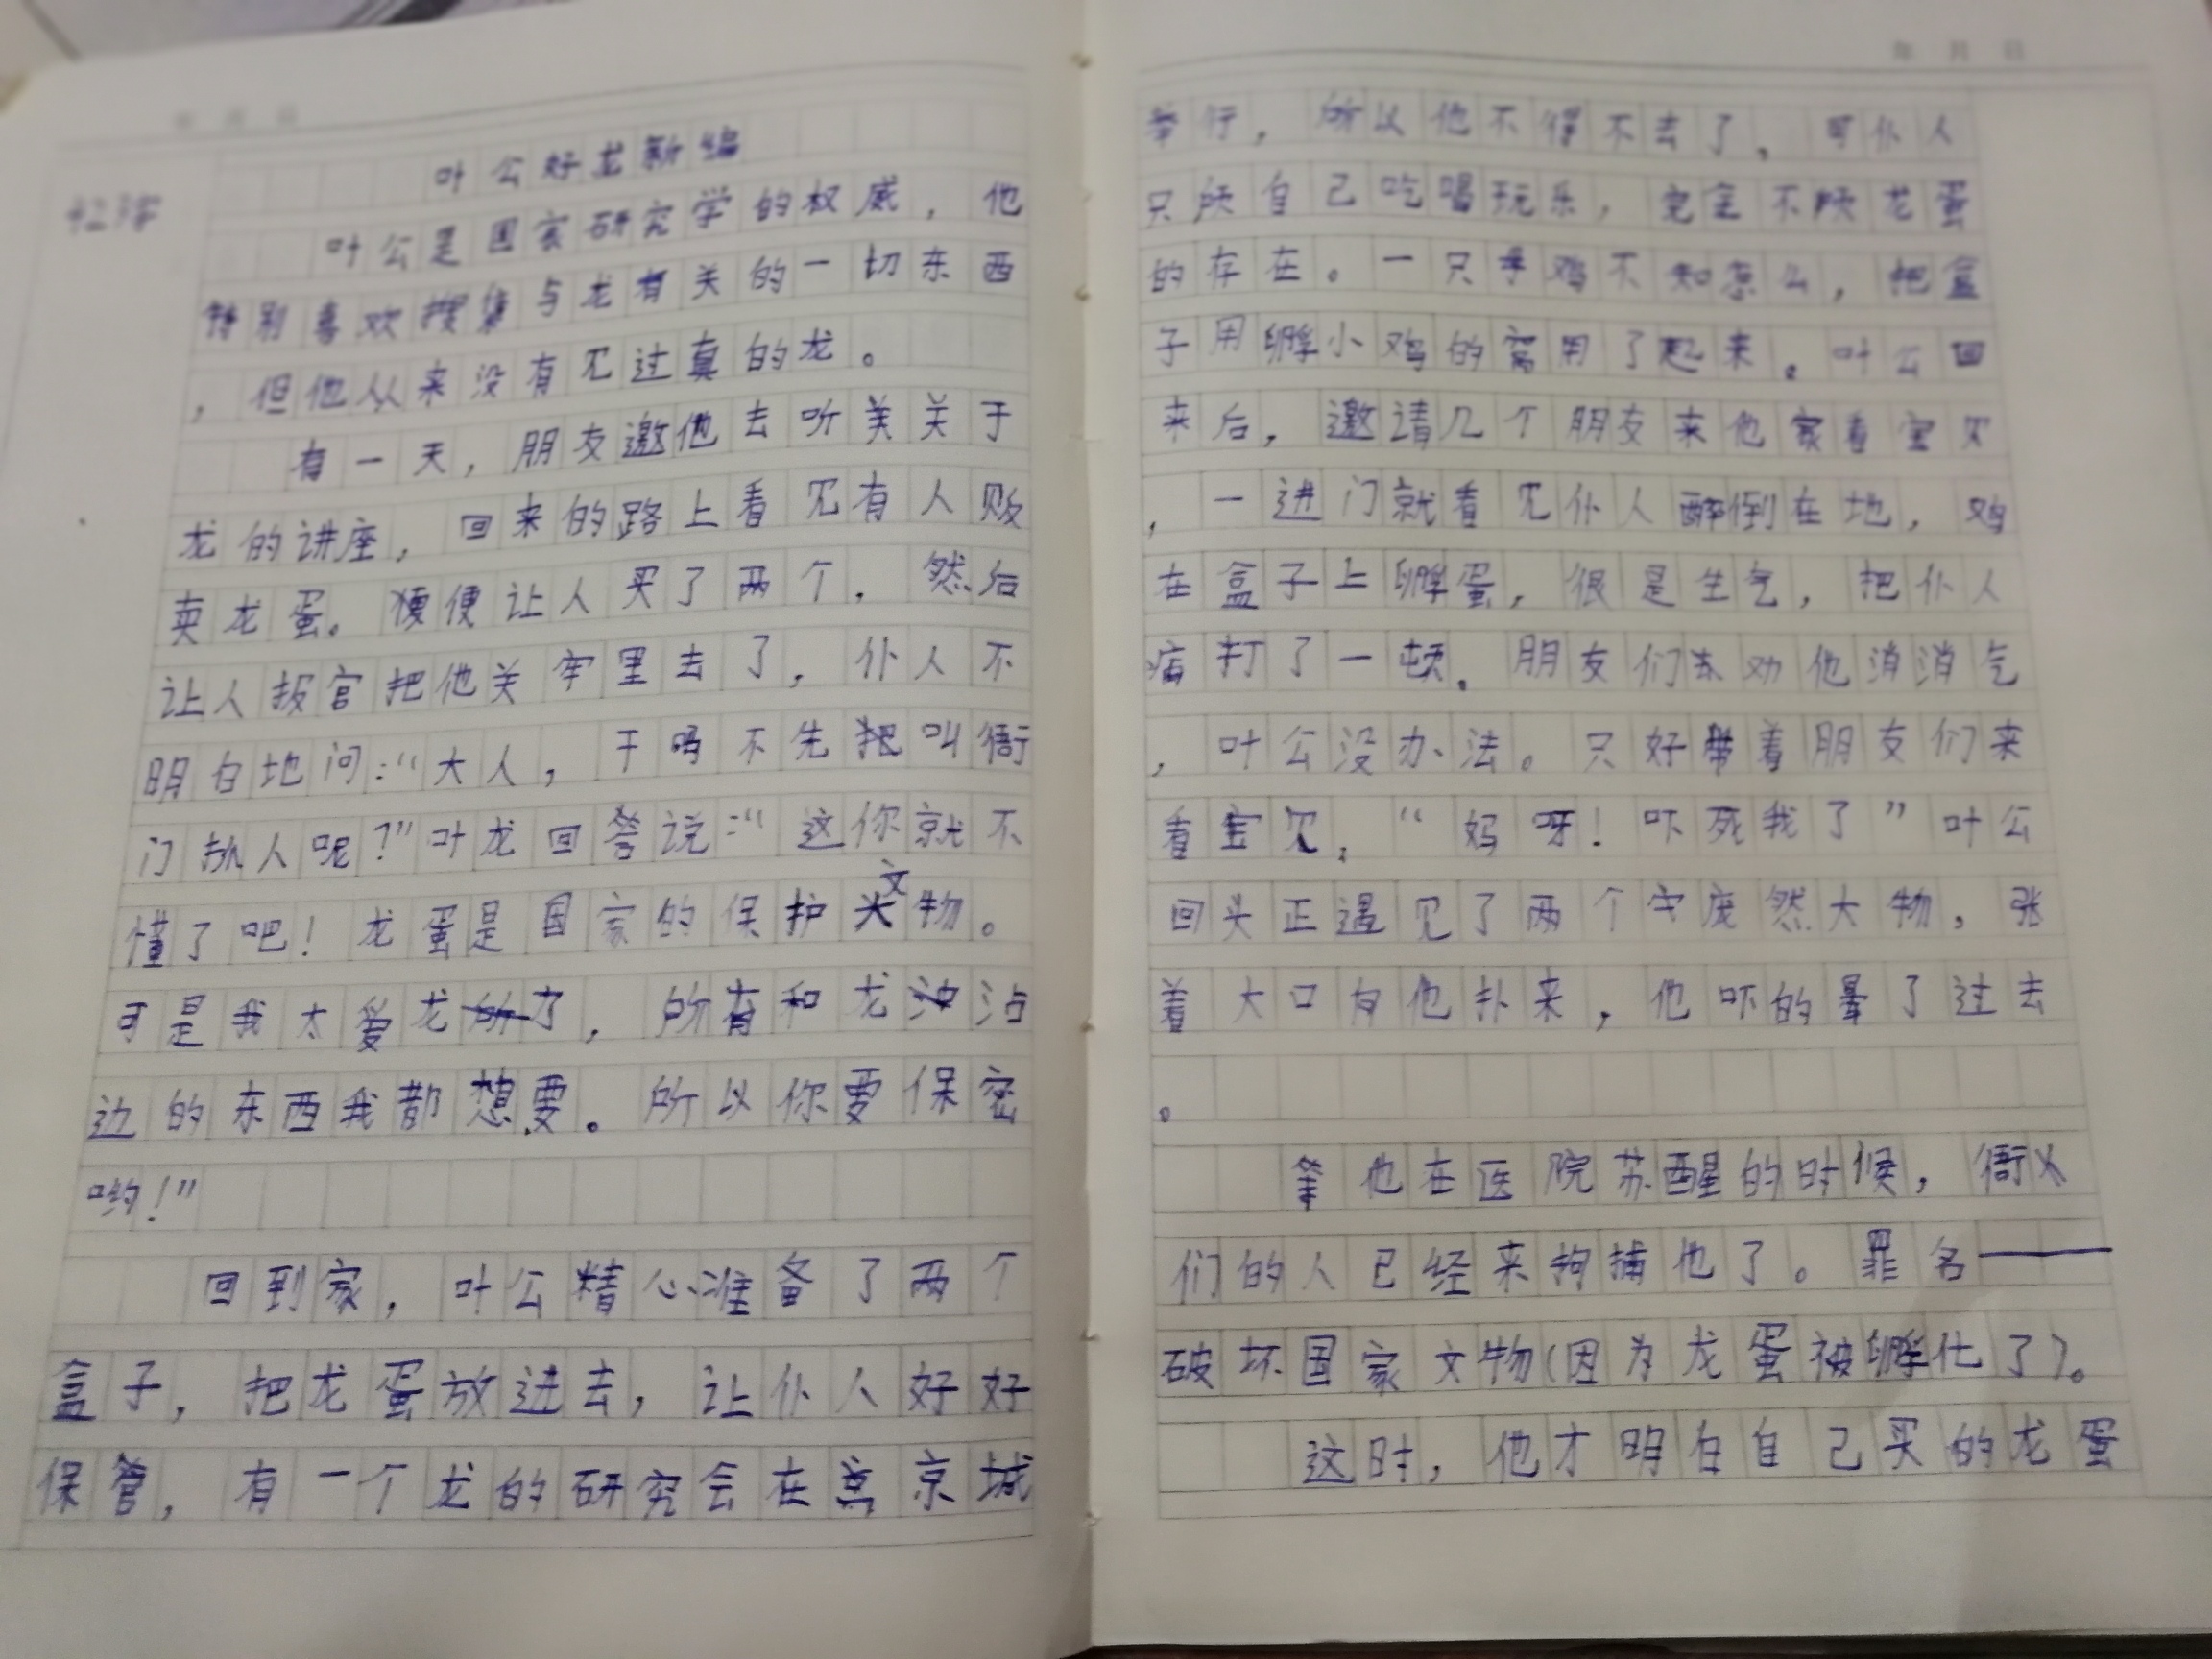 叶公好龙新编
叶公是国家研究学的权威，他
特别喜欢搜集与龙有关的一切东西
，但他从来没有见过真的龙。
有一天，朋友邀他去听关关于
龙的讲座，回来的路上看见有人贩
卖龙蛋。便便让人买了两个，然后
让人报官把他关牢里去了，仆人不
明白地问：“大人，干吗不先把叫衙
门抓人呢？”叶龙回答说：“这你就不
懂了吧！龙蛋是国家的保护文物。
可是我太爱龙了，所有和龙沾
边的东西我都想要。所以你要保密
哟！”
回到家，叶公精心准备了两个
盒子，把龙蛋放进去，让仆人好好
保管，有一个龙的研究会在京城
年 月 日
举行，所以他不得不去了。可仆人
只顾自己吃喝玩乐，完全不顾龙蛋
的存在。一只母鸡不知怎么，把盒
子用孵小鸡的窝用了起来。叶公回
来后，邀请几个朋友来他家看宝贝
，一进门就看见仆人醉倒在地，鸡
在盒子上孵蛋，很是生气，把仆人
痛打了一顿。朋友们劝他消消气
，叶公没办法。只好带着朋友们来
看宝贝，“妈呀！吓死我了”叶公
回头正遇见了两个庞然大物，张
着大口向他扑来，他吓的晕了过去
。
等他在医院苏醒的时候，衙义
们的人已经来拘捕他了。罪名——
破坏国家文物（因为龙蛋被孵化了）。
这时，他才明白自己买的龙蛋